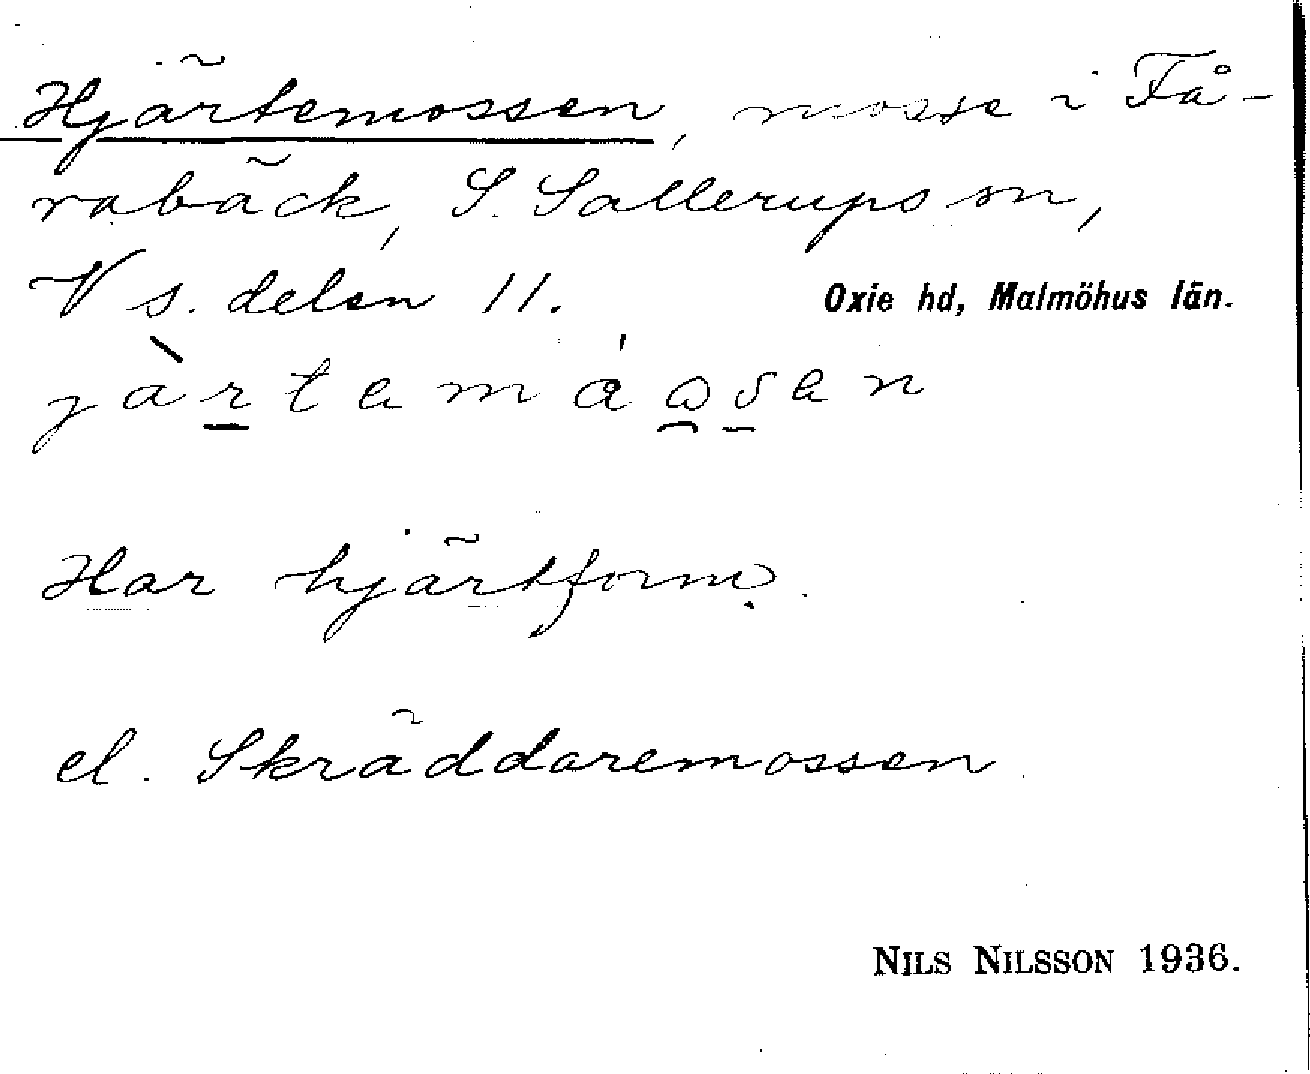 Hjärtemossen, mosse i Få-
rabäck, S. Sallerups sn,
V s. delen 11. Oxie hd, Malmöhus län.
jàrtemåo̯sen
Har hjärtform.
el. Skräddaremossen
NILS NILSSON 1936.